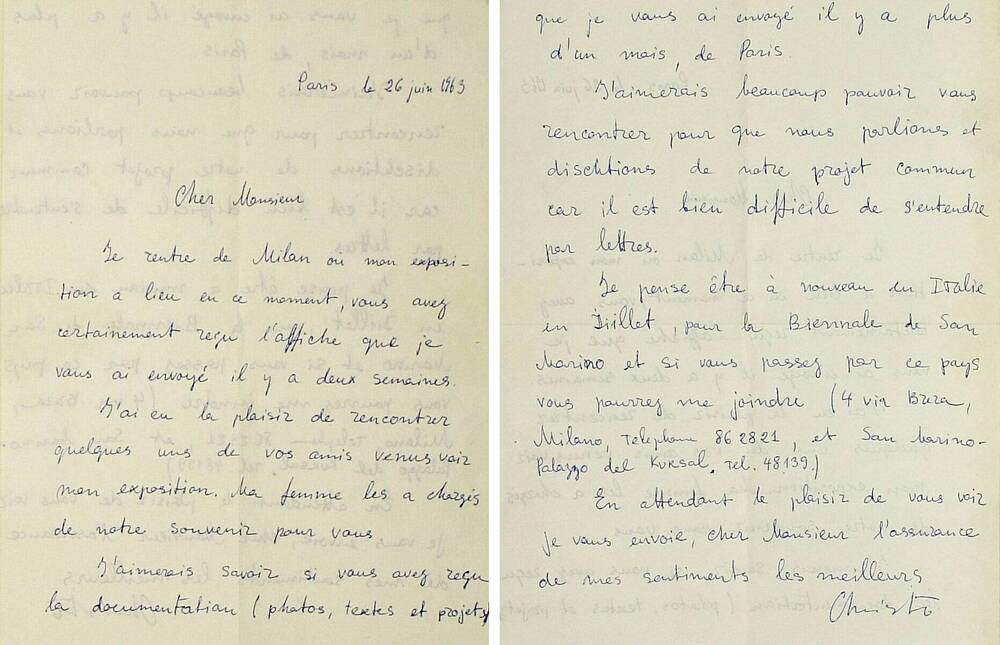 Paris le 26 juin 1963
Cher Monsieur
Je rentre de Milan où mon exposi-
tion a lieu en ce moment, vous avez
certainement reçu l'affiche que je
vous ai envoyé il y a deux semaines.
J'ai eu la plaisir de rencontrer
quelques uns de vos amis venus voir
mon exposition. Ma femme les a chargés
de notre souvenir pour vous
J'aimerais savoir si vous avez reçu
la documentation (photos, textes et projets)
que je vous ai envoyé il y a plus
d'un mois, de Paris.
J'aimerais beaucoup pouvoir vous
rencontrer pour que nous parlions et
discutions de notre projet commun
car il est bien difficile de s'entendre
par lettres.
Je pense être à nouveau en Italie
en Juillet, pour la Biennale de San
Marino et si vous passez par ce pays
vous pourrez me joindre (4 via Brera,
Milano, Telephone 862821, et San Marino-
Palazzo del Kursal. Tel. 48139.)
En attendant le plaisir de vous voir
je vous envoie, cher Monsieur l'assurance
de mes sentiments les meilleurs
Christo